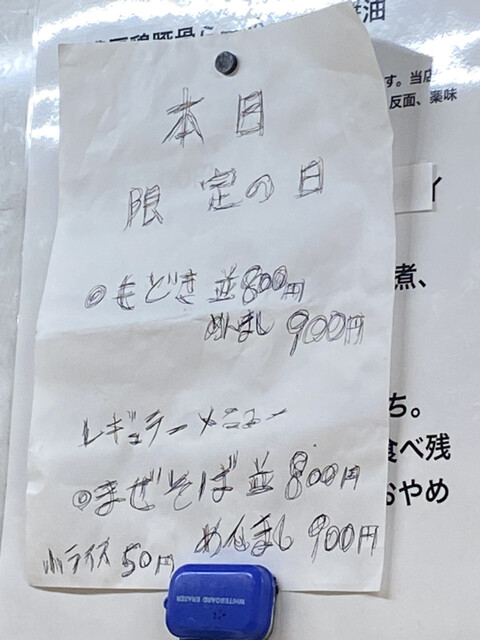 油
す。当店
反面、薬味
イ
煮、
ち。
食べ残
おやめ
本日
限定の日
◎もどき並800円
めんまし 900円
レギュラーメニュー
◎まぜそば並800円
めんまし 900円
小ライス 50円
WHITEBOARD ERASER